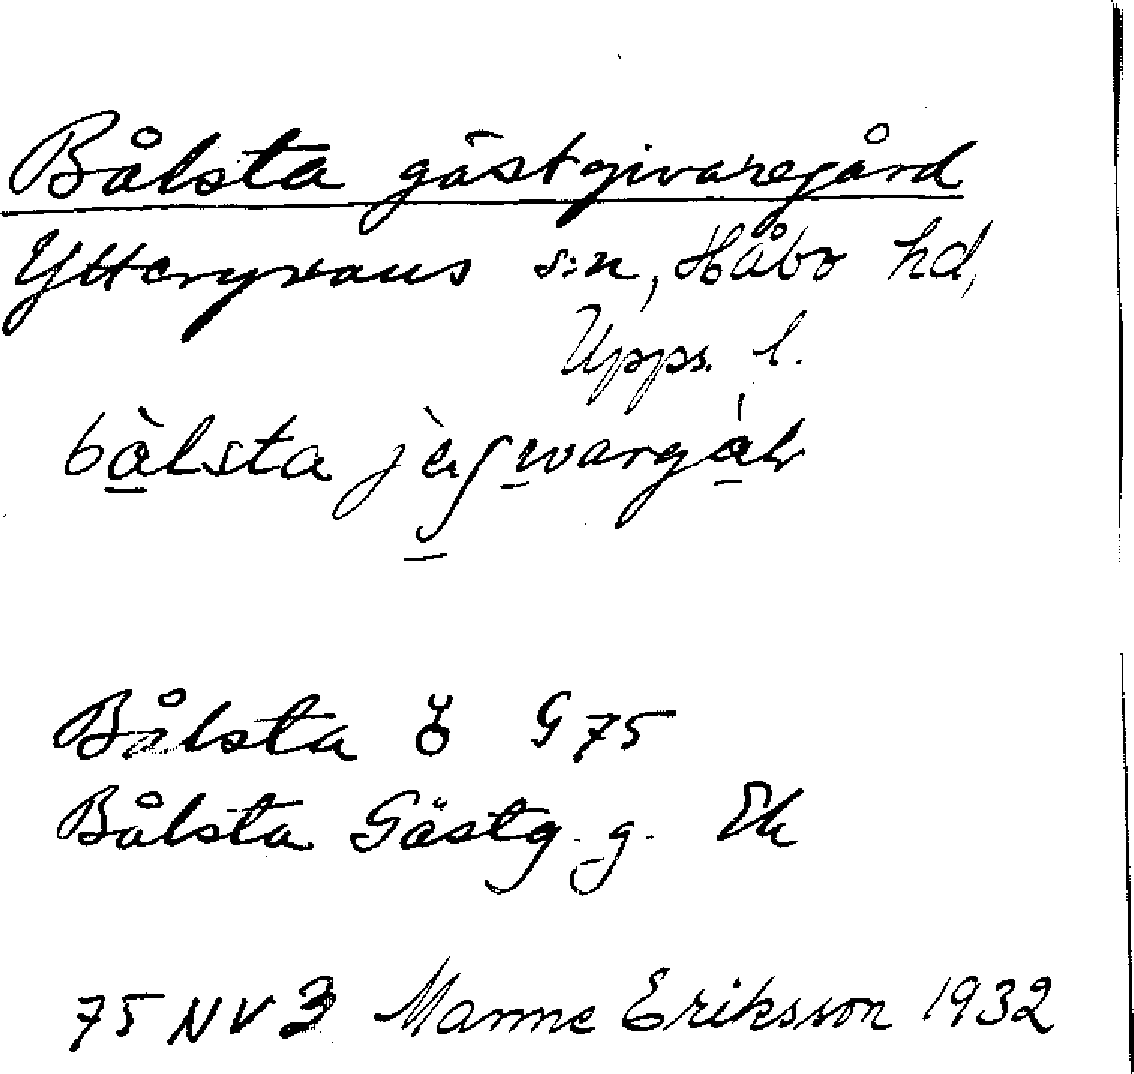 Bålsta gästgivaregård
Yttergrans s:n, Håbo hd,
Upps. l.
Bålsta G 75
Bålsta Gästg. g. Ek
75 NV 3 Manne Eriksson 1932